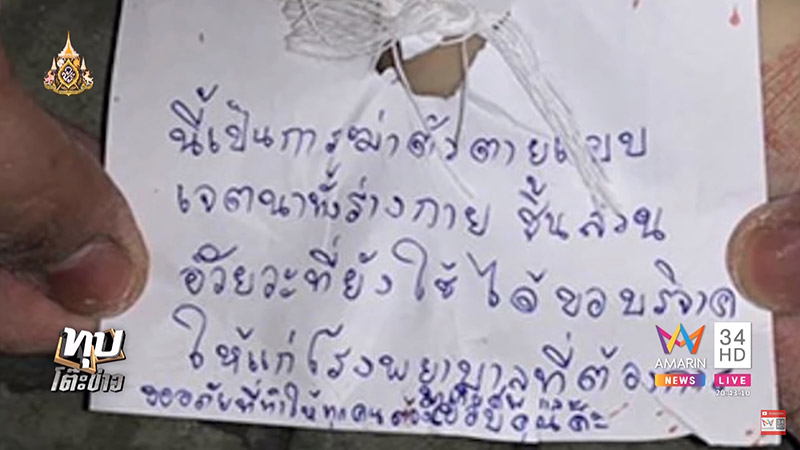 นี้เป็นการฆ่าตัวตายแบบ
เจตนาทั้งร่างกาย ชิ้นส่วน
อวัยวะที่ยังใช้ได้ขอบริจาค
ให้แก่โรงพยาบาลที่ต้อง
ขออภัยที่ทำให้ทุกคนต้อง
ทุบ
โต๊ะข่าว
AMARIN
NEWS
34
HD
LIVE
20:43:10